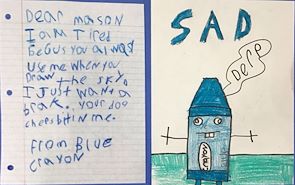 Dear mason
I am Tired
becus you always
use me when you
Draw the sky.
I Just want a
brak. your doo
in me.
from Blue
crayon
SAD
Derp